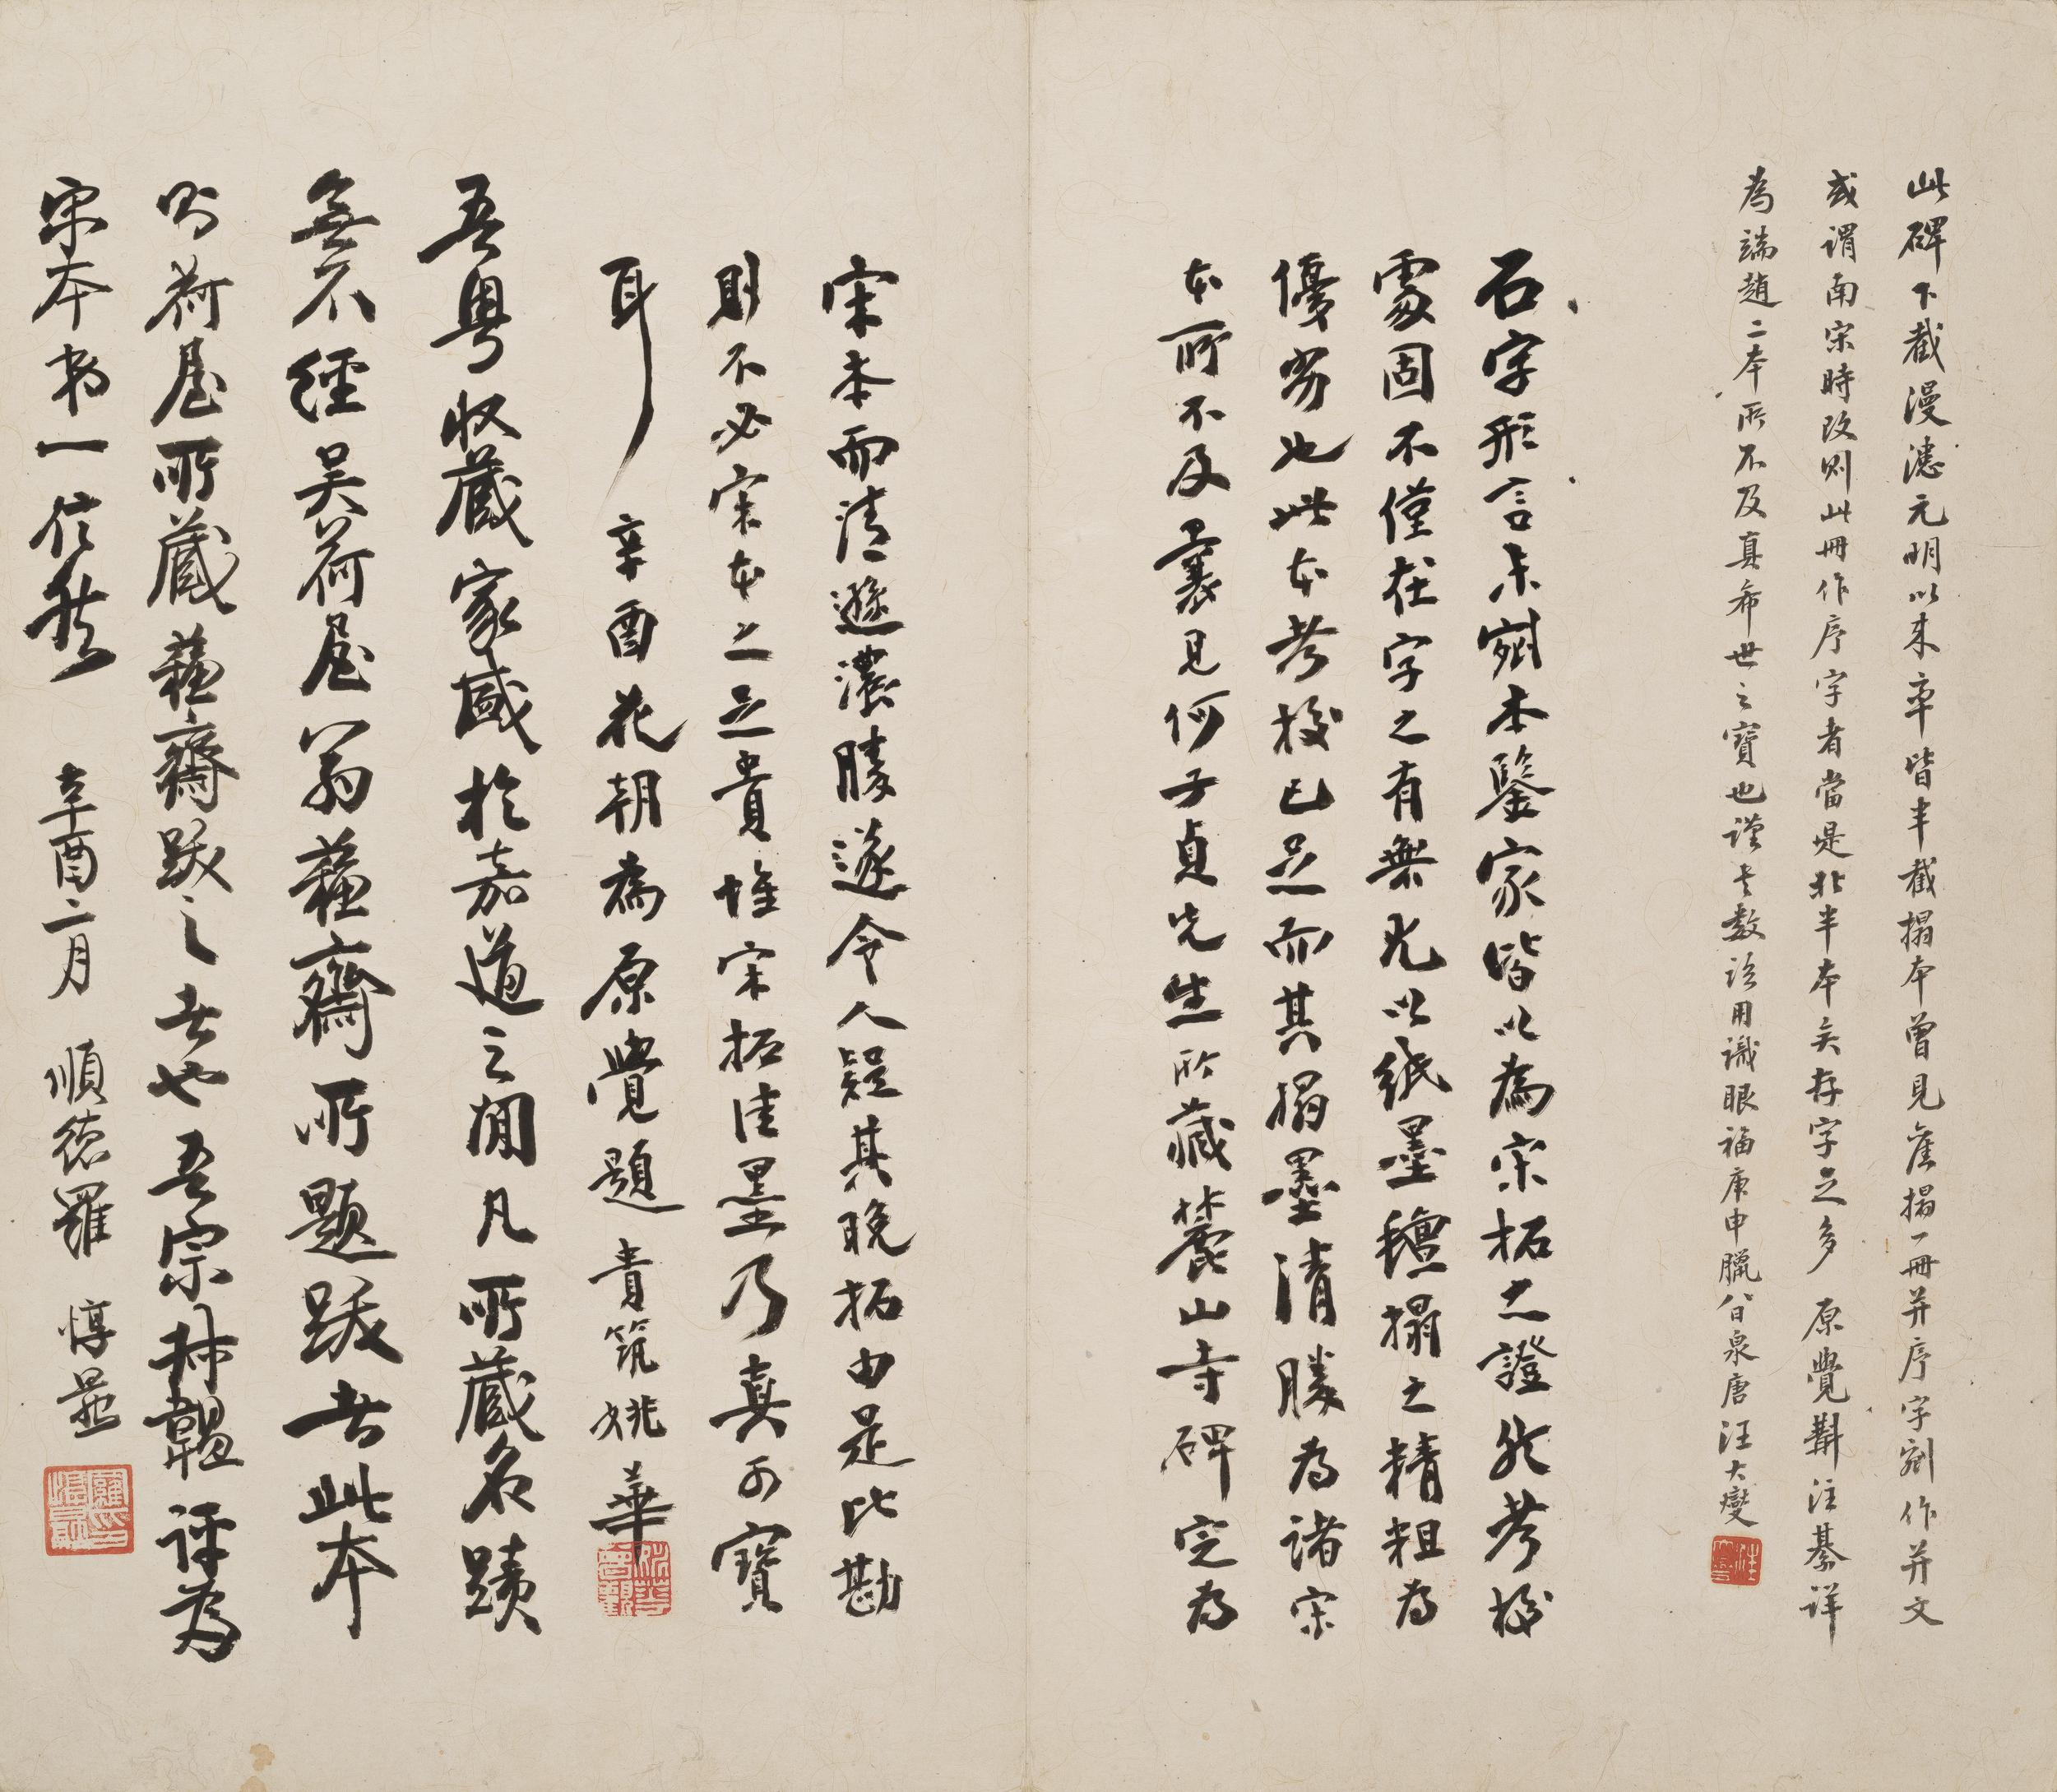 此碑下截漫漶元明以來率皆半截搨本曾見舊搨一冊并序字剜作并文
或謂南宋時改則此冊作序字者當是北半本矣存字之多 原覺斠注綦詳
為端趙二本所不及真希世之寶也謹書數語用識眼福庚申臘八日泉唐汪大燮
石字形言未剜本鑒家皆以為宋拓之證然考校
處固不僅在字之有無尤以紙墨氈搨之精粗為
優劣也此本考校已足而其搨墨清勝為諸宋
本所不及曩見何子貞先生所藏麓山寺碑定為
宋本而清遜濃勝遂令人疑其晚拓由是比勘
則不必宋本之足貴惟宋拓佳墨乃真可寶
耳 辛酉花朝為原覺題 貴筑姚華
吾粵收藏家盛於嘉道之間凡所藏名蹟
無不經吳荷屋翁蘇齋所題跋者此本
則荷屋所藏蘇齋跋之者也吾宗叔韞評為
宋本書一信然 辛酉二月 順德羅惇㬊